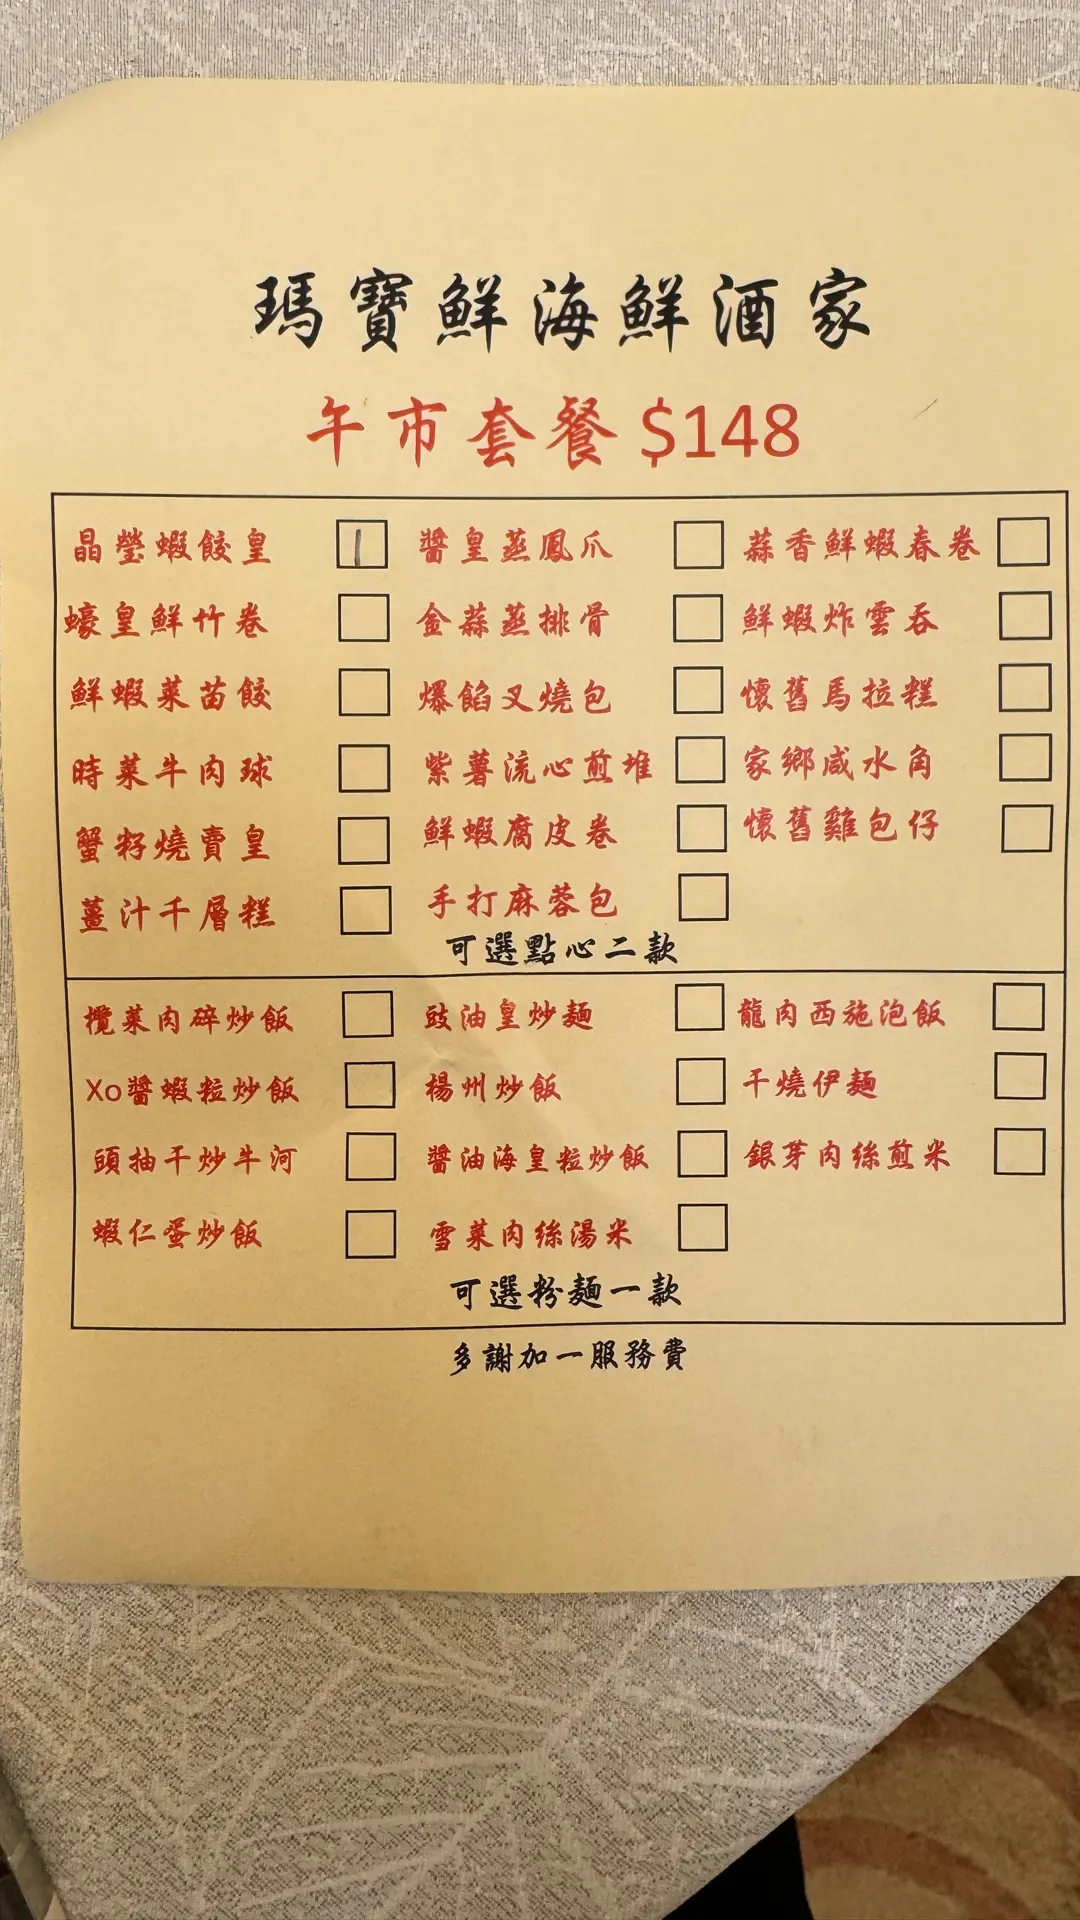 瑪寶鮮海鮮酒家
午市套餐 $148
晶瑩蝦餃皇 | 醬皇蒸鳳爪 蒜香鮮蝦春卷
蠔皇鮮竹卷 金蒜蒸排骨 鮮蝦炸雲吞
鮮蝦菜苗餃 爆餡叉燒包 懷舊馬拉糕
時菜牛肉球 紫薯流心煎堆 家鄉咸水角
蟹籽燒賣皇 鮮蝦腐皮卷 懷舊雞包仔
薑汁千層糕 手打麻蓉包
可選點心二款
欖菜肉碎炒飯 豉油皇炒麵 龍肉西施泡飯
Xo醬蝦粒炒飯 楊州炒飯 干燒伊麵
頭抽干炒牛河 醬油海皇粒炒飯 銀芽肉絲煎米
蝦仁蛋炒飯 雪菜肉絲湯米
可選粉麵一款
多謝加一服務費